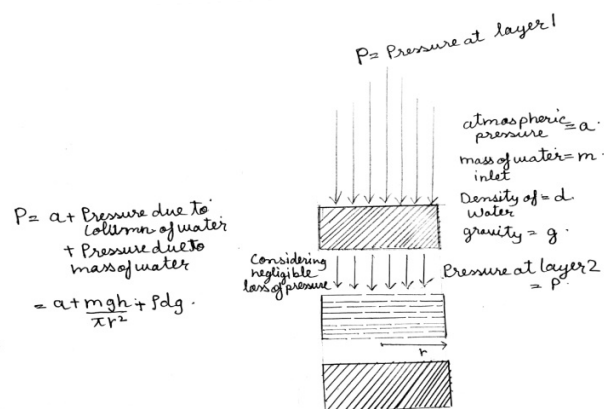 P= Pressure at layer 1
atmospheric pressure = a.
mass of water = m.
inlet
Density of = d.
Water
gravity = g.
P= a + Pressure due to
column of water
+ Pressure due to
mass of water
= a + mgh/πr² + ρdg.
Considering
negligible
loss of pressure
Pressure at layer 2
= P.
r